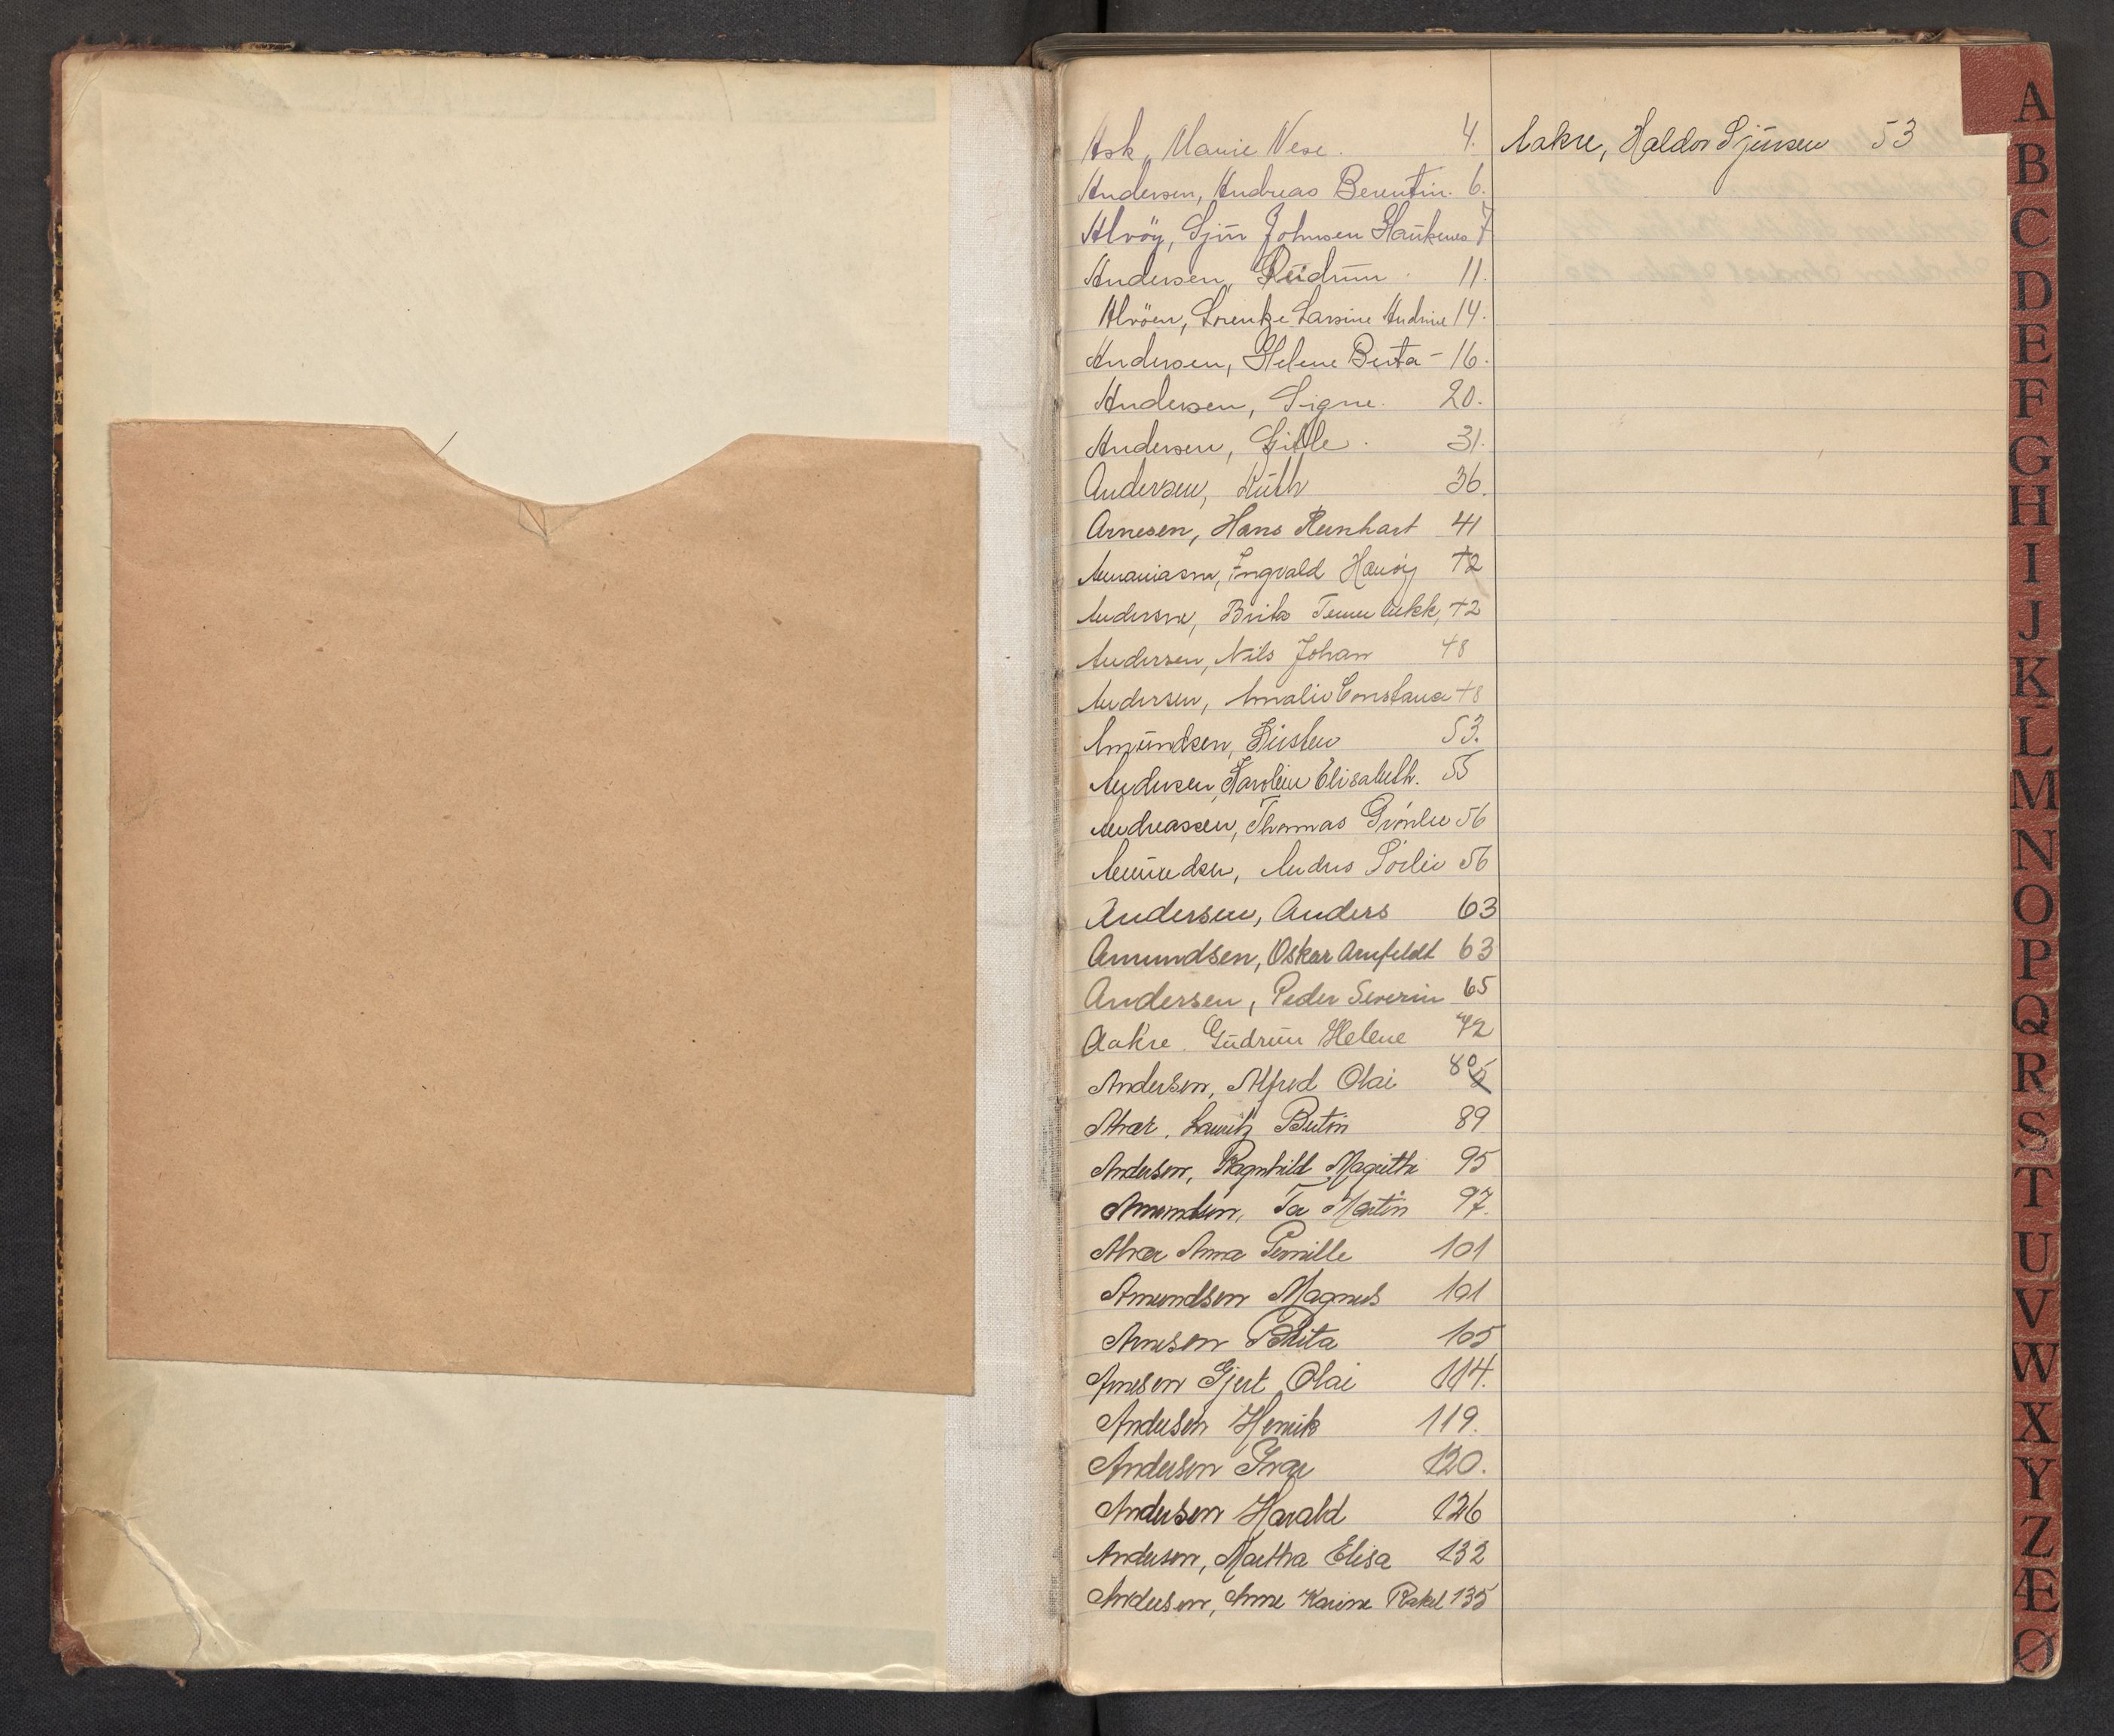 Ask, Marie Nese. 4.
Andersen, Andreas Berentin. 6.
Alvöy, Sjūr Johnsen Haukenes 7
Andersen, Gūdrūn. 11.
Alvöen, Lorentze Larsine Andrine 14.
Andersen, Helene Berta - 16.
Andersen, Signe. 20.
Andersen, 31.
Andersen, Rūth 36.
Arnesen, Hans Reinhart 41
Ananiassen, Ingvald Hauöy 42
Andersen, 42
Andersen, Nils Johan 48
Andersen, Amalie Constance 48
Amūndsen, Kirsten 53.
Andersen, Karoline Elisabeth. 55
Andreassen, Thomas Grönlie 56
Amūndsen, Andris 56
Andersen, Anders 63
Amundsen, Oskar Arnfeldt 63
Andersen, Peder Severin 65
Aakre. Gūdrūn Helene 72
Andersen, Alfred Olai 80
Alvær, Lauritz Bertin 89
Andersen, Ragnhild Magrethe 95
Amundsen, Tor Martin 97.
Alvær Anna Pernille 101
Amundsen Magnus 101
Arnesen 105
Arnesen Gjert Olai 114.
Andersen Henrik 119.
Andersen Ivar 120.
Andersen Harald 126
Andersen, Martha Elisa 132
Andersen, Anne Karine Rakel 135
Aakre, Haldor Sjūrsen 53
A
B
C
D
E
F
G
H
I
J
K
L
M
N
O
P
Q
R
S
T
U
V
W
X
Y
Z
Æ
Ø